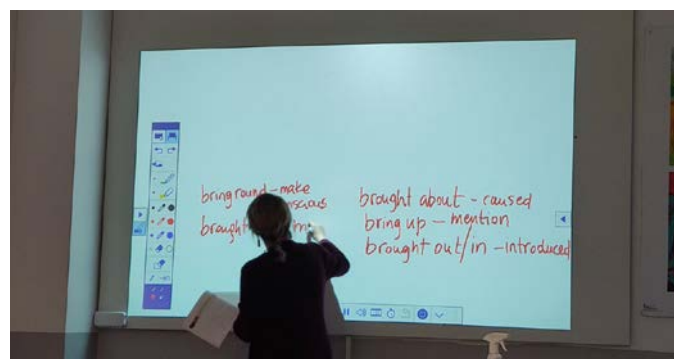 bring round - make
nscious
brought
brought about - caused
bring up - mention
brought out/in - introduced